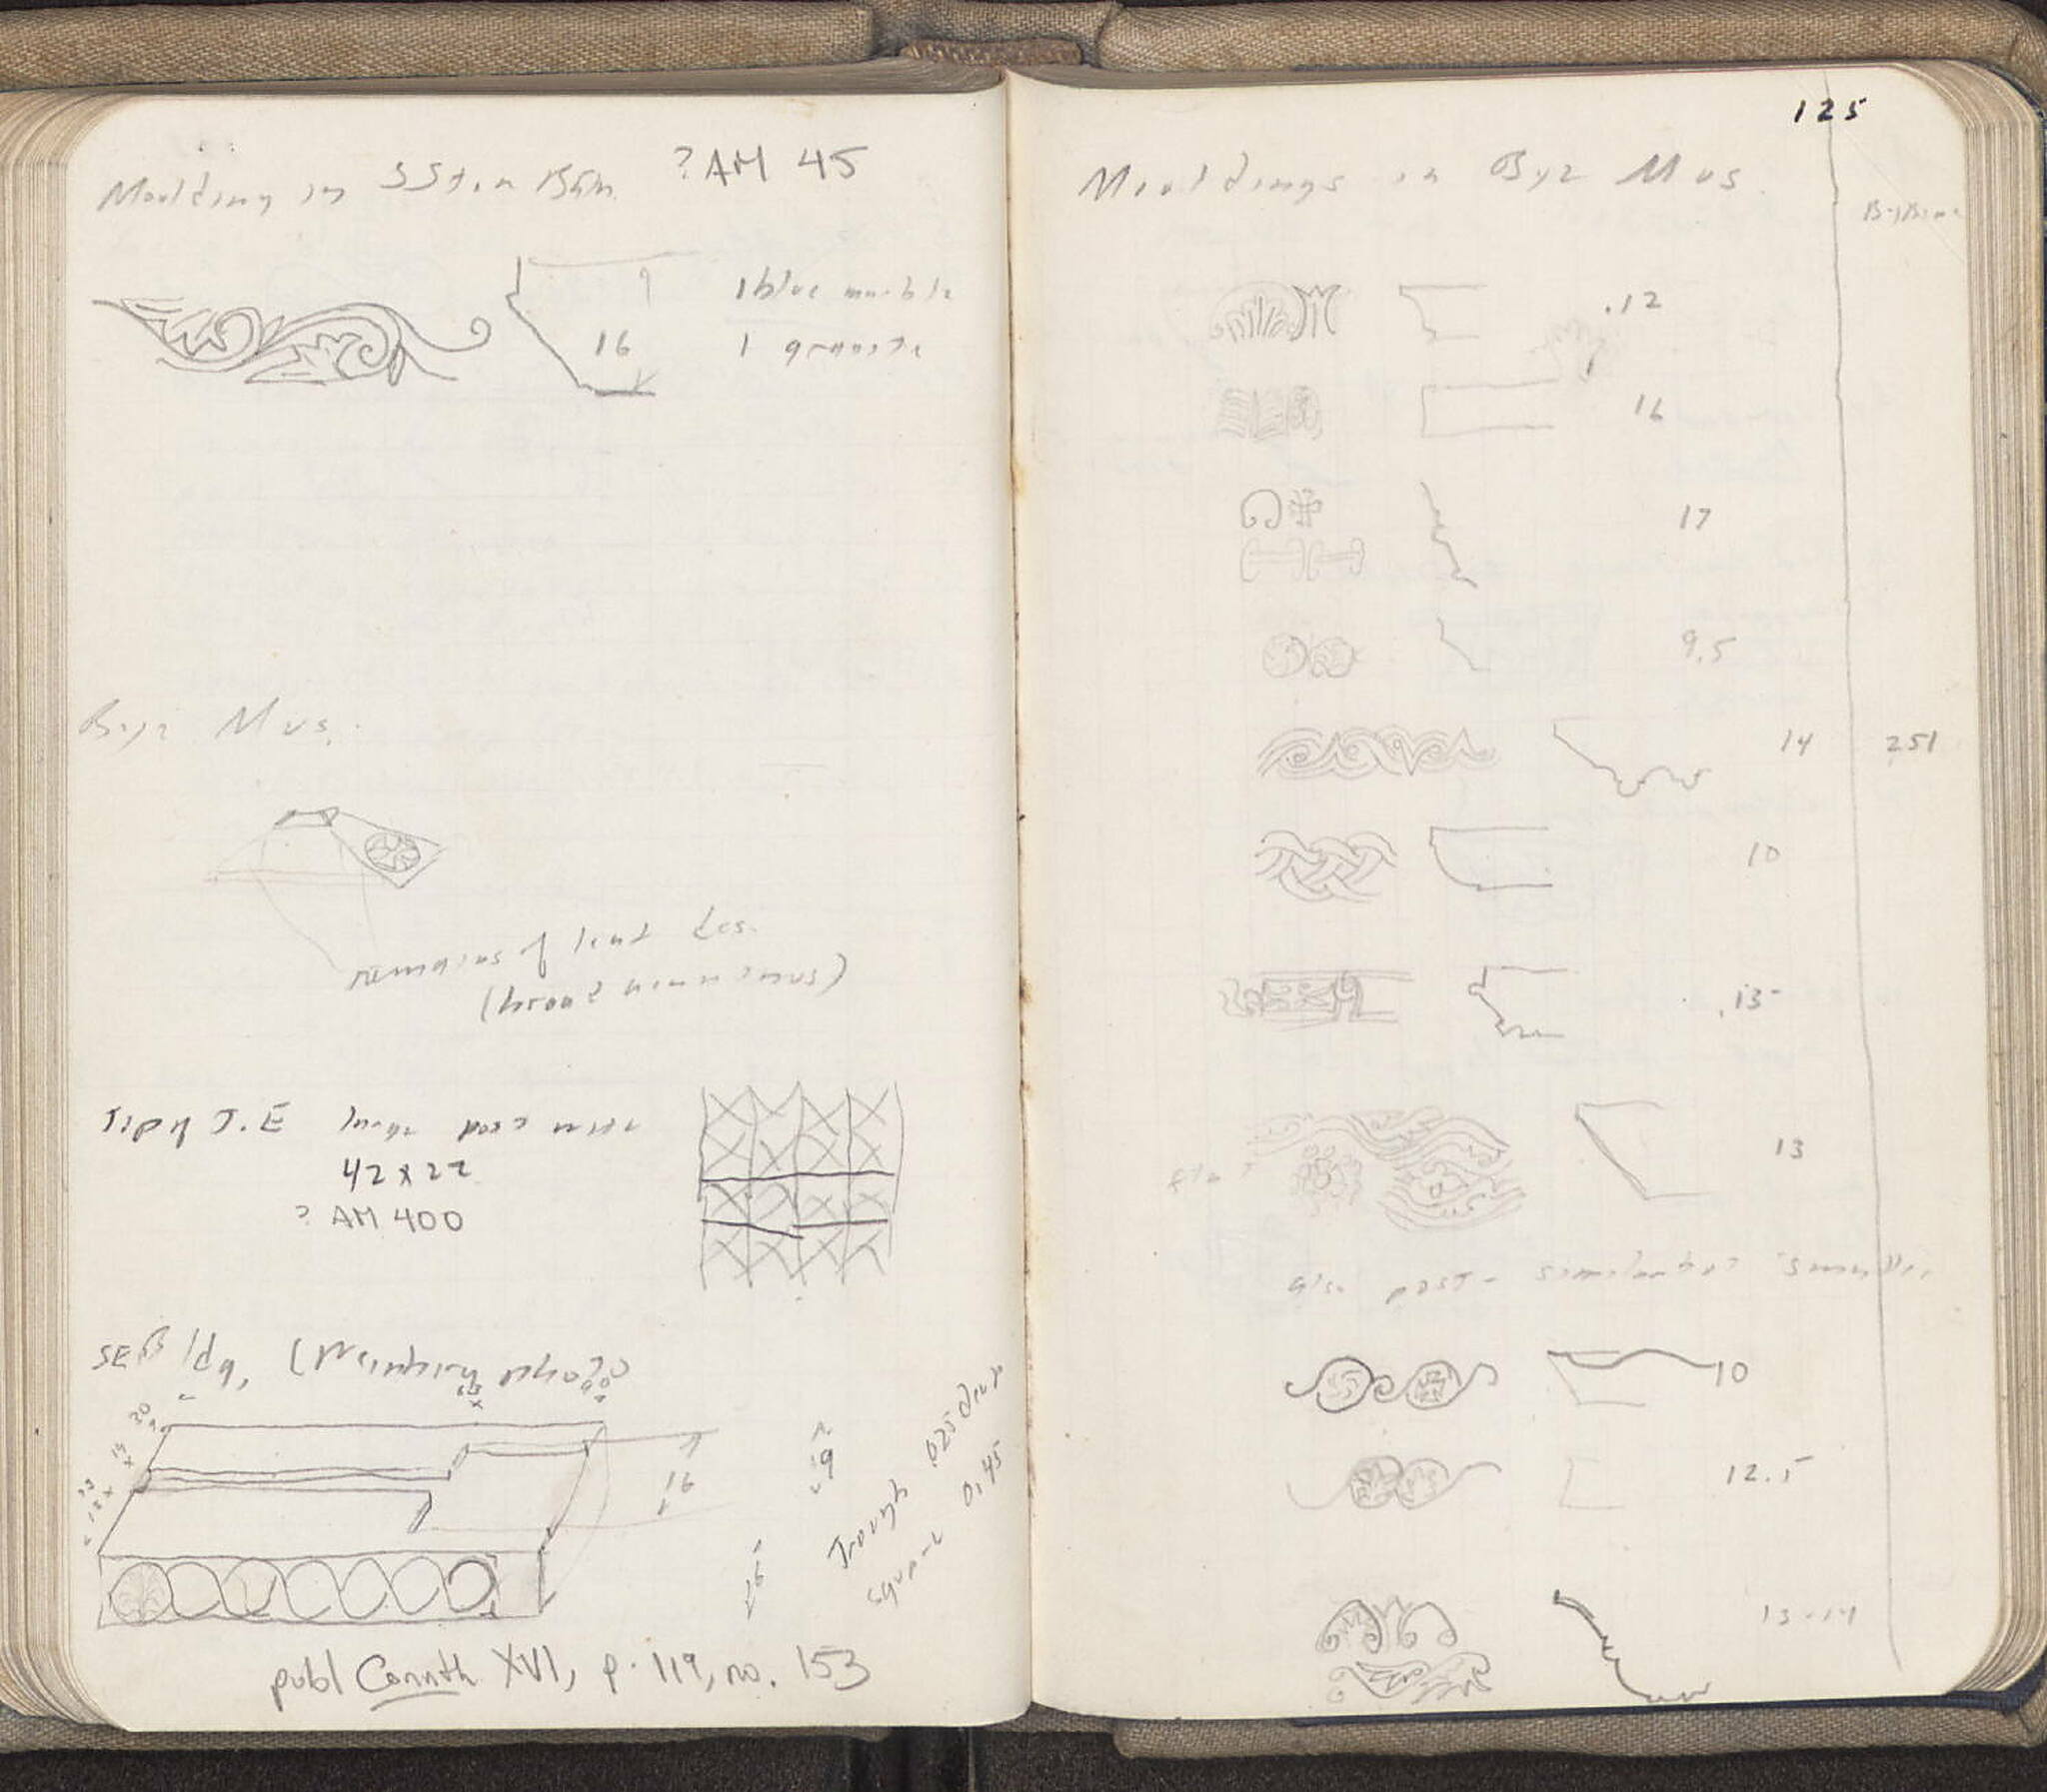 Moulding in S Stoa Bsm. ? AM 45
1 blue marble
16
1 granite
Byz Mus.
remains of leaf des.
(broad acanthus)
J. E large post with
42 x 22
? AM 400
SE Bldg, (Weinberg photo)
20
16
19
16
Trough .025 deep
square 0.45
publ Corinth XVI, p. 119, no. 153
125
Mouldings in Byz Mus.
.12
16
17
9.5
14 251
10
.13
13
also post - similar but smaller
10
12.5
13-14